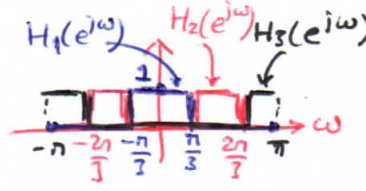 H₁(e^{jω}) H₂(e^{jω}) H₃(e^{jω})
1
-π -2π/3 -π/3 π/3 2π/3 π ω